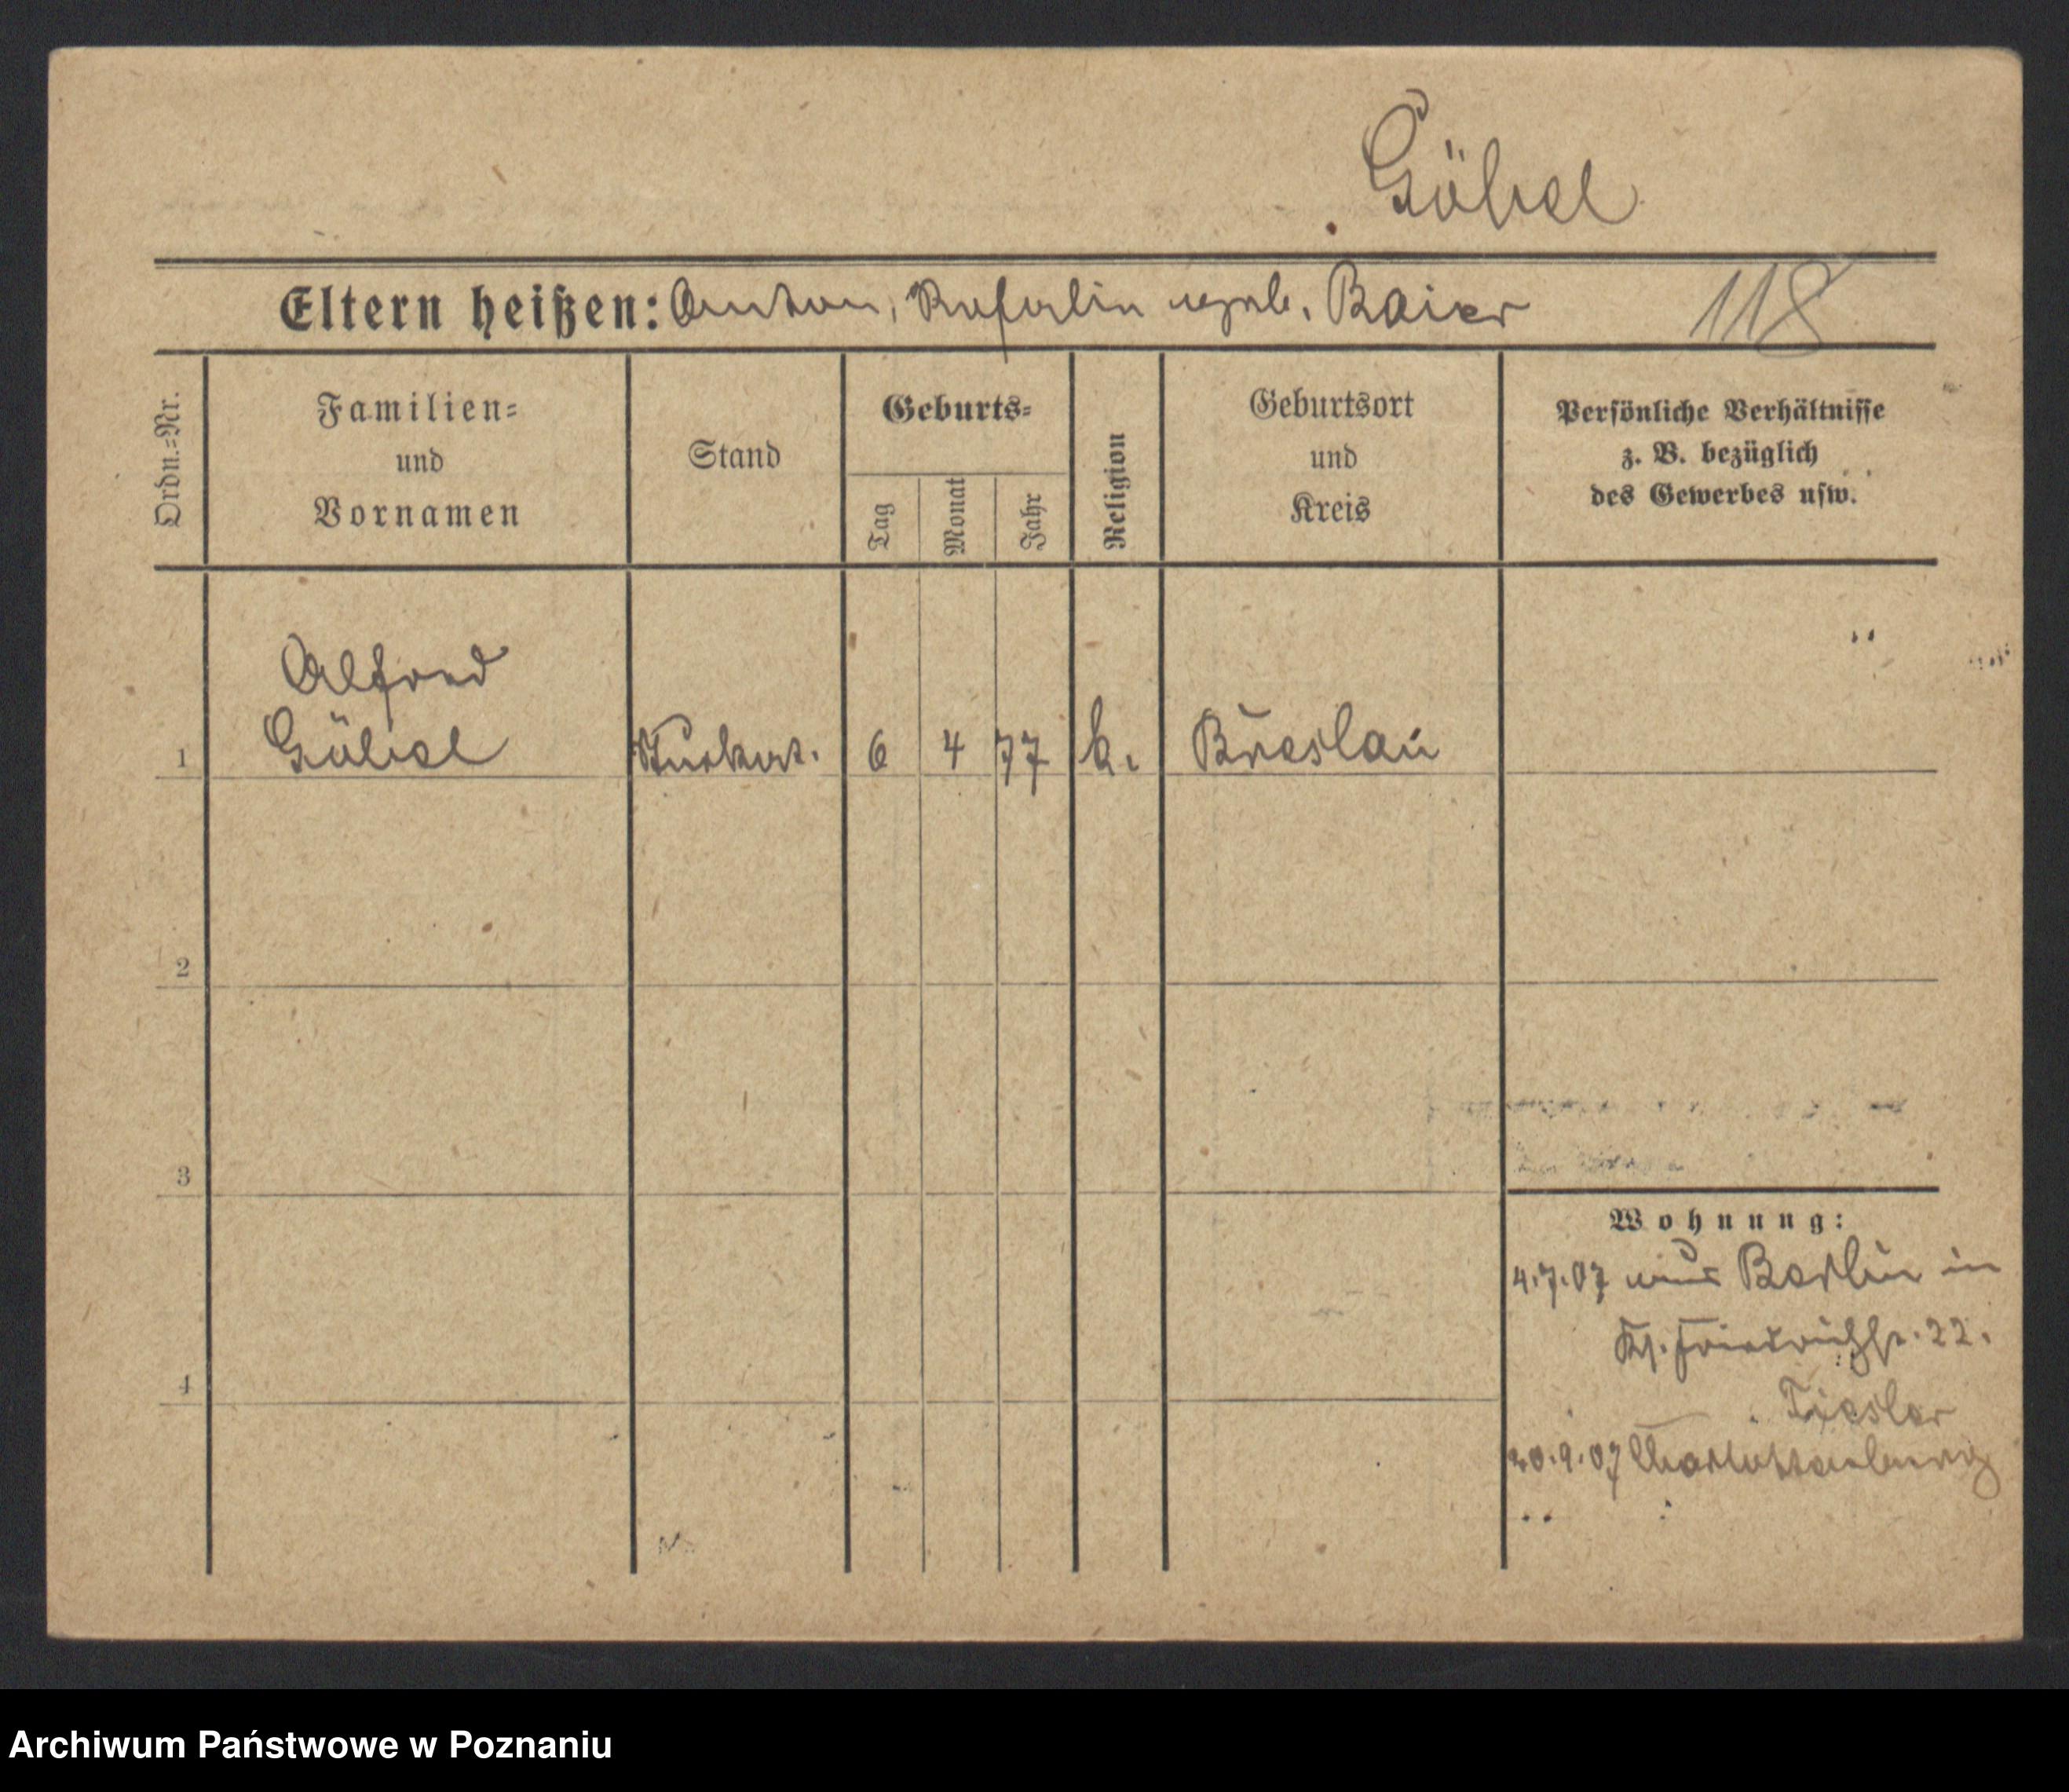 Göbel
Eltern heißen: Anton, Rosalin geb. Baier 118
Ordn.=Nr.
Familien=
und
Vornamen
Stand
Geburts=
Tag
Monat
Jahr
Religion
Geburtsort
und
Kreis
Persönliche Verhältnisse
z. B. bezüglich
des Gewerbes usw.
Alfred
1 Göbel 6 4 77 k. Breslau
2
3
4
Wohnung:
4.7.07 aus Berlin in
Friedrichstr. 22.
Tiesler
20.9.07 Charlottenburg
Archiwum Państwowe w Poznaniu